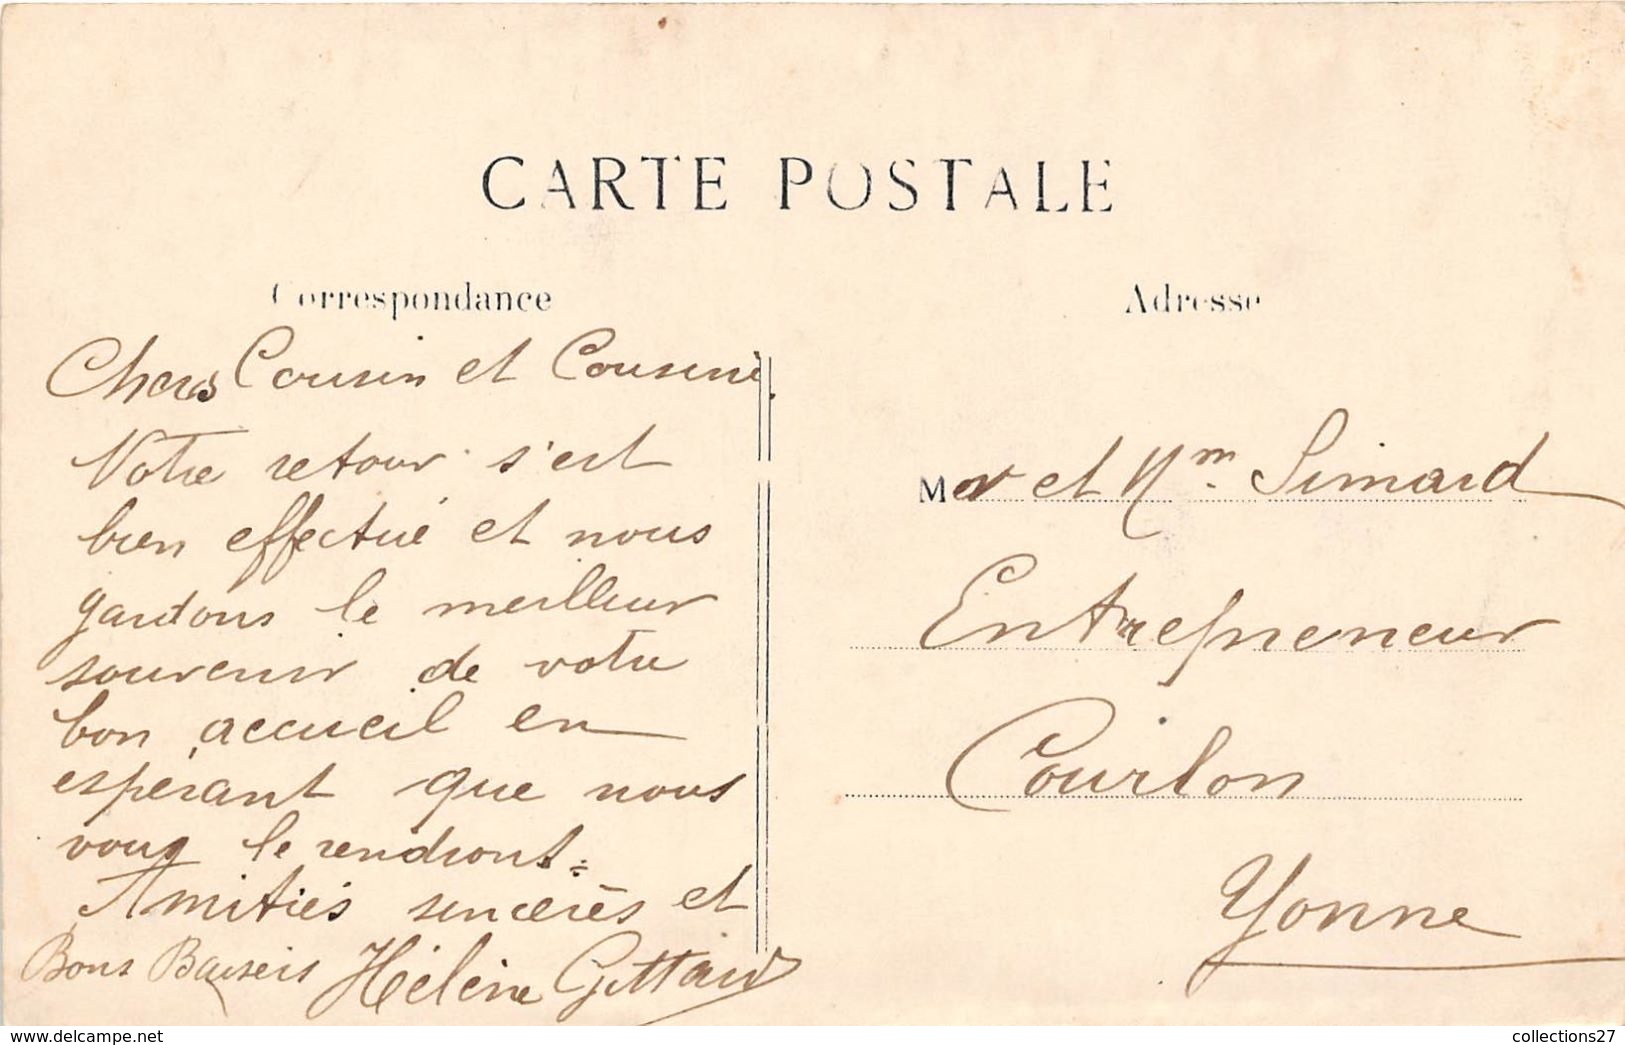 CARTE POSTALE
Correspondance
Chers Cousin et Cousine
Votre retour s'est
bien effectué et nous
gardons le meilleur
souvenir de votre
bon accueil en
espérant que nous
vous le rendront.
Amitiés sincères et
Bons Baisers Hélène Gittard
Adresse
Mr et Mm. Simard
Entrepreneur
Courlon
Yonne
www.delcampe.net
collections27